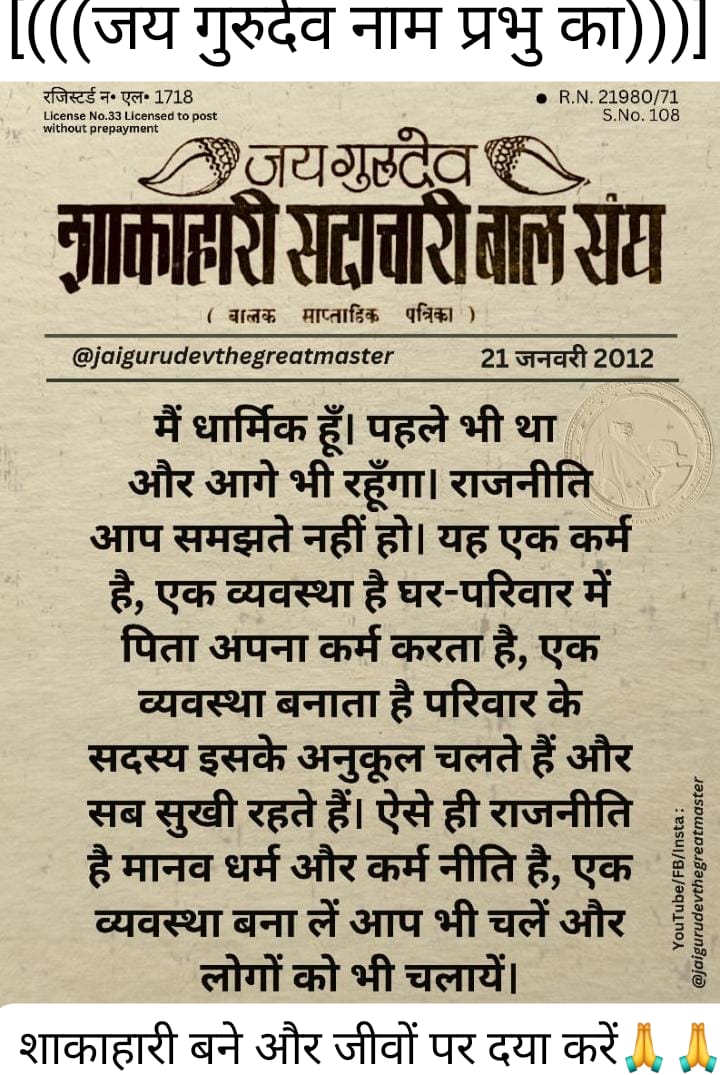 [(((जय गुरुदेव नाम प्रभु का)))]
रजिस्टर्ड न॰ एल॰ 1718
License No.33 Licensed to post
without prepayment
● R.N. 21980/71
S.No. 108
जयगुरुदेव
शाकाहारी सदाचारी बाल संघ
( बालक साप्ताहिक पत्रिका )
@jaigurudevthegreatmaster 21 जनवरी 2012
मैं धार्मिक हूँ। पहले भी था
और आगे भी रहूँगा। राजनीति
आप समझते नहीं हो। यह एक कर्म
है, एक व्यवस्था है घर-परिवार में
पिता अपना कर्म करता है, एक
व्यवस्था बनाता है परिवार के
सदस्य इसके अनुकूल चलते हैं और
सब सुखी रहते हैं। ऐसे ही राजनीति
है मानव धर्म और कर्म नीति है, एक
व्यवस्था बना लें आप भी चलें और
लोगों को भी चलायें।
YouTube/FB/Insta :
@jaigurudevthegreatmaster
शाकाहारी बने और जीवों पर दया करें🙏 🙏